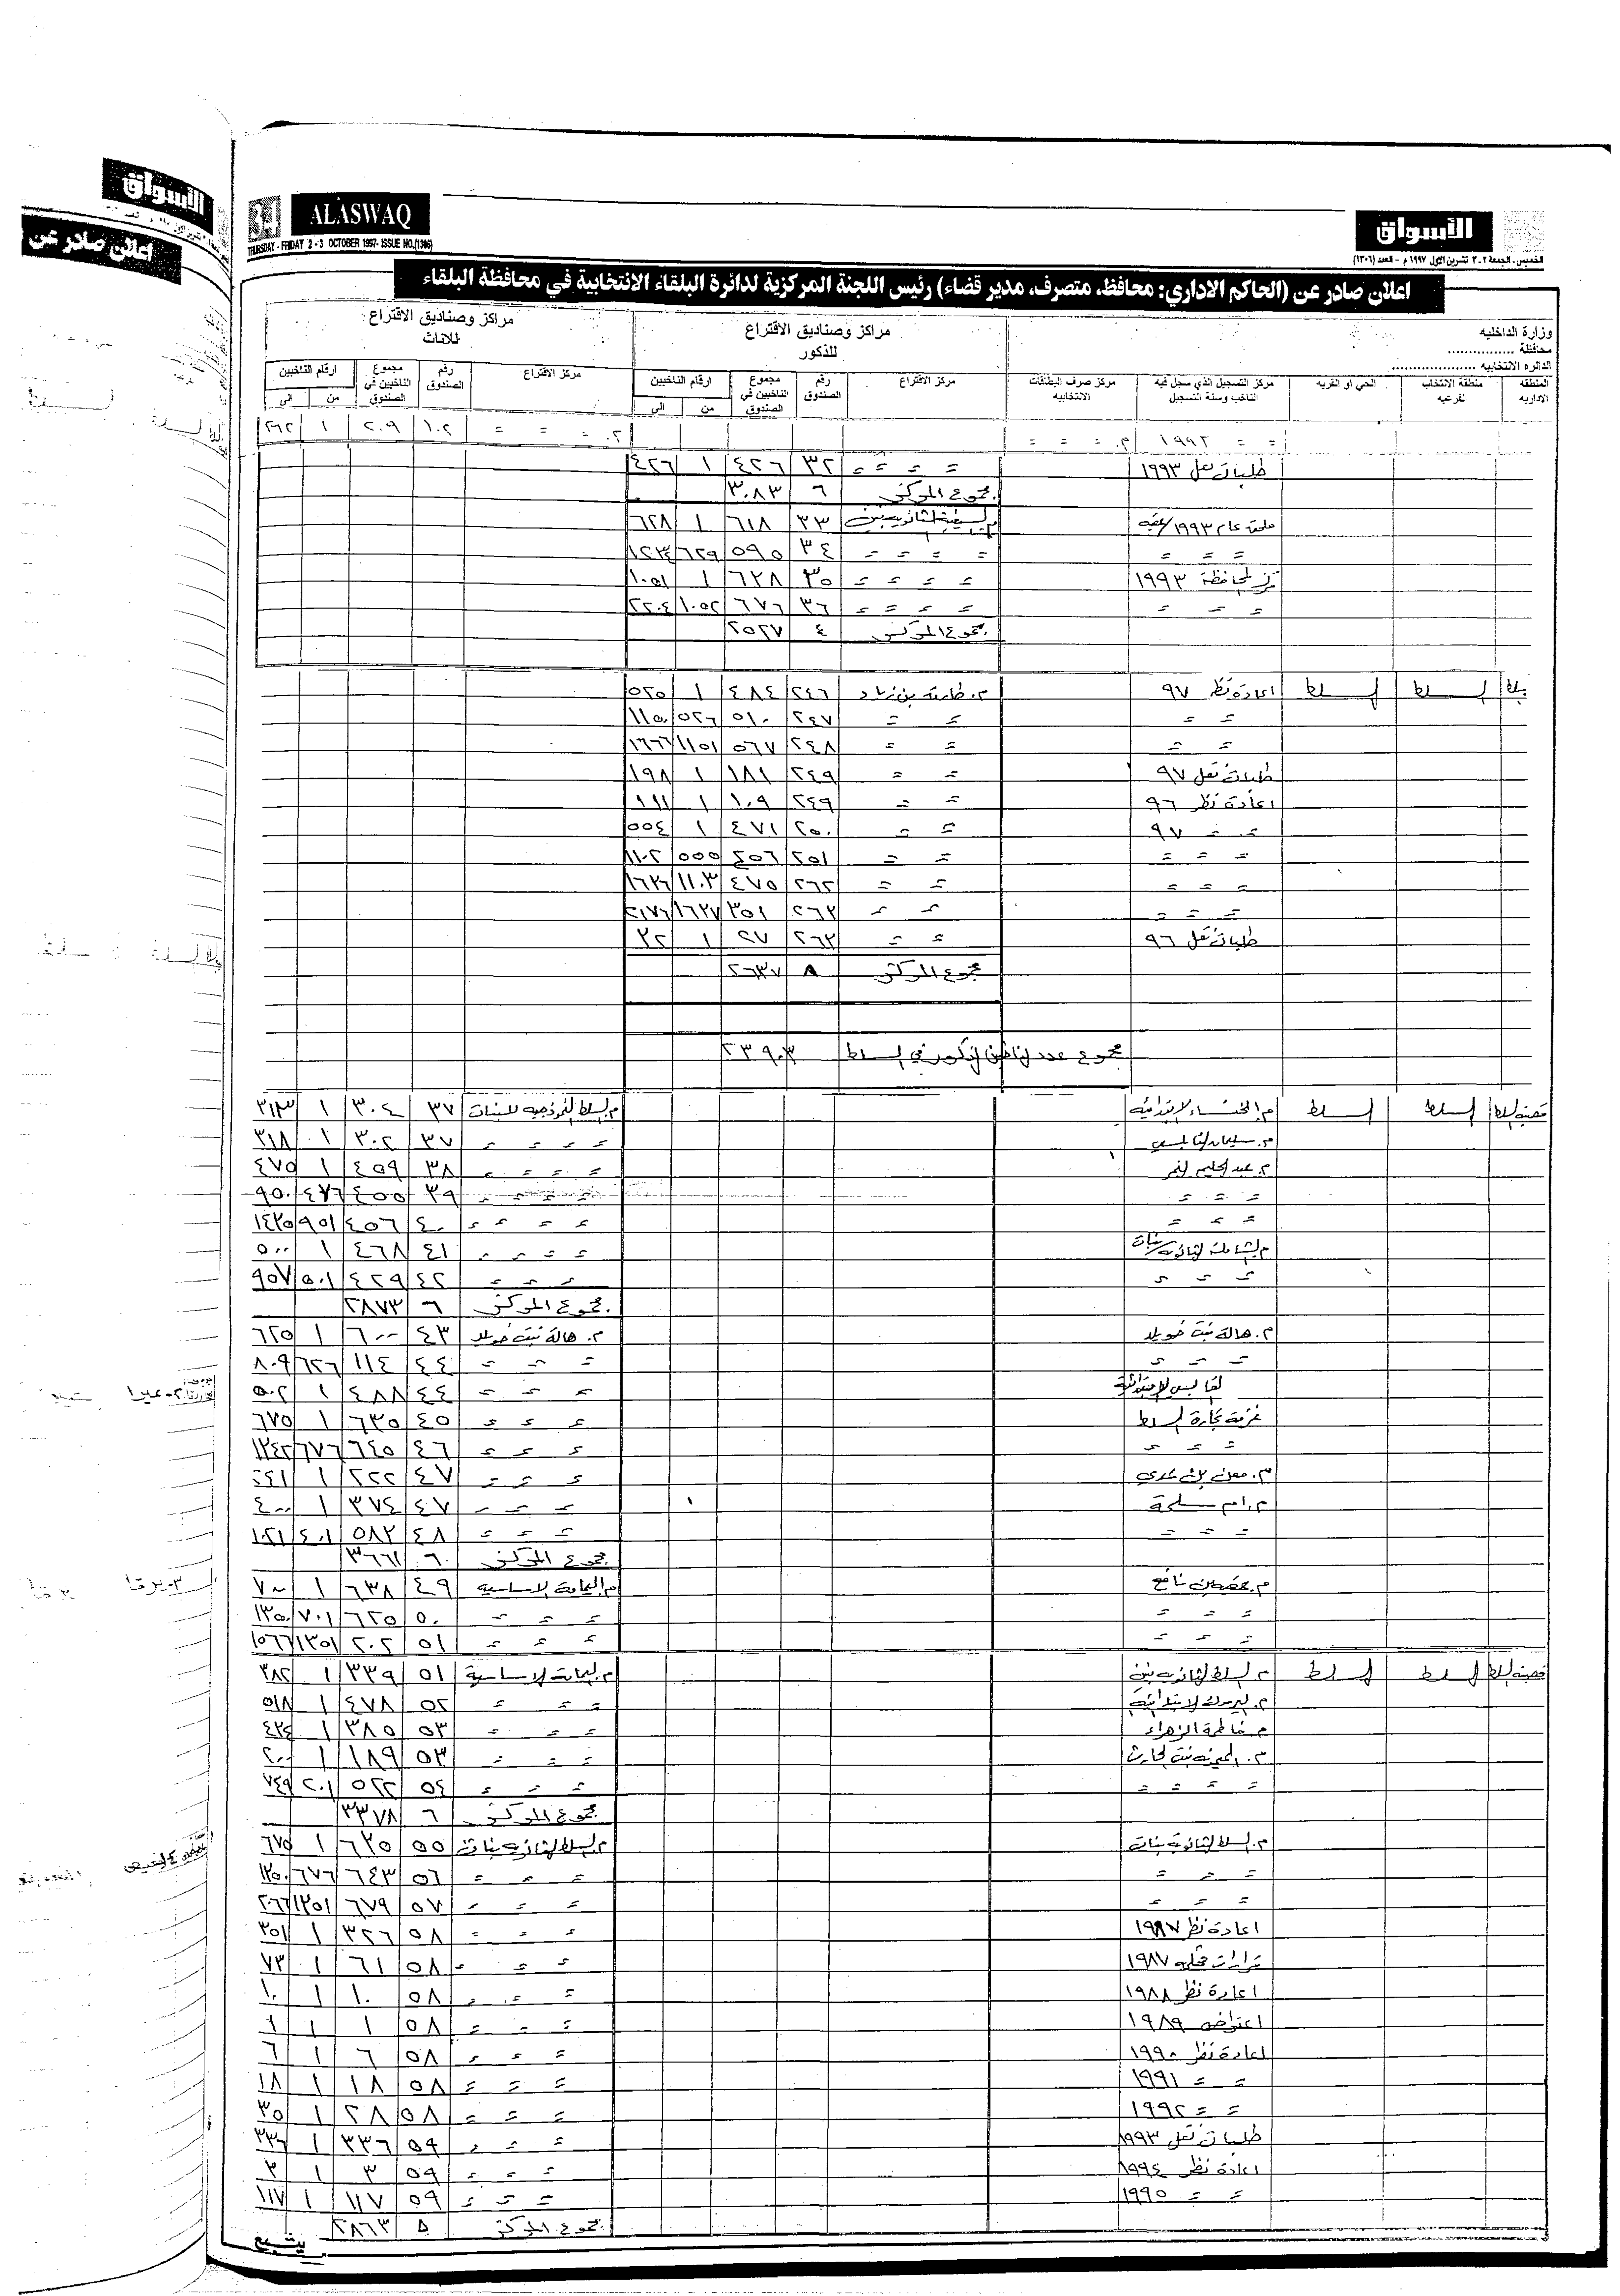 ALASWAQ
THURSDAY - FRIDAY 2 - 3 OCTOBER 1997 - ISSUE NO.(1306)
الأسواق
الخميس، الجمعة ٢-٣ تشرين الاول ١٩٩٧م - العدد (١٣٠٦)
اعلان صادر عن (الحاكم الاداري: محافظ، متصرف، مدير قضاء) رئيس اللجنة المركزية لدائرة البلقاء الانتخابية في محافظة البلقاء
وزارة الداخليه
محافظة ................
الدائره الانتخابيه ................
مراكز وصناديق الاقتراع للذكور
مراكز وصناديق الاقتراع للاناث
المنطقه الاداريه | منطقة الانتخاب الفرعيه | الحي او القريه | مركز التسجيل الذي سجل فيه الناخب وسنة التسجيل | مركز صرف البطاقات الانتخابيه | مركز الاقتراع | رقم الصندوق | مجموع الناخبين في الصندوق | ارقام الناخبين من الى | مركز الاقتراع | رقم الصندوق | مجموع الناخبين في الصندوق | ارقام الناخبين من الى
= = ١٩٩٢ م. = = = ٢. = = = ١٠٢ ٢٠٩ ١ ٢٦٢
طلبات نقل ١٩٩٣ = = = = ٣٢ ٤٢٦ ١ ٤٢٦
مجموع المركز ٦ ٣٠٨٣
٣٣ ٦١٨ ١ ٦٢٨
= = = = = = = ٣٤ ٥٩٥ ٦٢٩ ١٢٣٤
= = = = ٣٥ ٦٣٨ ١ ١٠٥١
= = = = = = = ٣٦ ٦٧٦ ١٠٥٢ ٢٢٠٤
مجموع المركز ٤ ٢٥٢٧
السلط السلط اعادة نظر ٩٧ م. طارق بن زياد ٢٤٦ ٤٨٤ ١ ٥٢٥
= = = = ٢٤٧ ٥١٠ ٥٢٦ ١١٥٠
= = = = ٢٤٨ ٥٦٧ ١١٥١ ١٦٦٦
طلبات نقل ٩٧ = = ٢٤٩ ١٨١ ١ ١٩٨
اعادة نظر ٩٦ = = ٢٤٩ ١٠٩ ١ ١١١
= = ٩٧ = = ٢٥٠ ٤٧١ ١ ٥٥٤
= = = = = ٢٥١ ٤٥٦ ٥٥٥ ١١٠٢
= = = = = ٢٦٢ ٤٧٥ ١١٠٣ ١٦٢٦
= = = = = ٢٦٣ ٣٥١ ١٦٢٧ ٢١٧٦
طلبات نقل ٩٦ = = ٢٦٣ ٢٧ ١ ٣٢
مجموع المركز ٨ ٢٦٣٧
مجموع عدد الناخبين الذكور في السلط ٢٣٩٠٣
قصبة السلط السلط السلط م. الخنساء الابتدائية م. السلط النموذجية للبنات ٣٧ ٣٠٤ ١ ٣١٣
م. سليمان النابلسي = = = = ٣٧ ٣٠٢ ١ ٣١٨
م. عبد الحليم النمر = = = = ٣٨ ٤٥٩ ١ ٤٧٥
= = = = = = = ٣٩ ٤٥٥ ٤٧٦ ٩٥٠
= = = = = = = ٤٠ ٤٥٦ ٩٥١ ١٤٢٥
م. الشاملة الثانوية بنات = = = = ٤١ ٤٦٨ ١ ٥٠٠
= = = = = = ٤٢ ٤٢٩ ٥٠١ ٩٥٧
مجموع المركز ٦ ٢٨٧٣
م. هالة بنت خويلد م. هالة بنت خويلد ٤٣ ٦٠٠ ١ ٦٢٥
= = = = = = ٤٤ ١١٤ ٦٢٦ ٨٠٩
= = = ٤٤ ٤٨٨ ١ ٥٠٢
غرفة تجارة السلط = = = ٤٥ ٦٣٥ ١ ٦٧٥
= = = = = = ٤٦ ٦٤٥ ٦٧٦ ١٣٤٢
م. معن بن عدي = = = ٤٧ ٢٢٢ ١ ٢٤١
م. ام سلمة = = = ٤٧ ٣٧٤ ١ ٤٠٠
= = = = = = ٤٨ ٥٨٢ ٤٠١ ١٠٢١
مجموع المركز ٦ ٣٦٦١
م. عقبة بن نافع م. اليمامة الاساسية ٤٩ ٦٣٨ ١ ٧٠٠
= = = = = = ٥٠ ٦٢٥ ٧٠١ ١٣٥٠
= = = = = = ٥١ ٢٠٢ ١٣٥١ ١٥٦٦
قصبة السلط السلط السلط م. السلط الثانوية بنين م. اليمامة الاساسية ٥١ ٣٣٩ ١ ٣٨٢
م. اليرموك الابتدائية = = = ٥٢ ٤٧٨ ١ ٥١٨
م. فاطمة الزهراء = = = ٥٣ ٣٨٥ ١ ٤٢٤
م. الميمونه بنت الحارث = = = ٥٣ ١٨٩ ١ ٢٠٠
= = = = = = = ٥٤ ٥٢٢ ٢٠١ ٧٤٩
مجموع المركز ٦ ٣٣٧٨
م. السلط الثانوية بنات م. السلط الثانوية بنات ٥٥ ٦٢٥ ١ ٦٧٥
= = = = = = ٥٦ ٦٤٣ ٦٧٦ ١٣٥٠
= = = = = = ٥٧ ٦٧٩ ١٣٥١ ٢٠٦٦
اعادة نظر ١٩٨٧ = = = ٥٨ ٣٢٦ ١ ٣٥١
قرارات محكمه ١٩٨٧ = = = ٥٨ ٦١ ١ ٧٣
اعادة نظر ١٩٨٨ = = = ٥٨ ١٠ ١ ١٠
اعتراض ١٩٨٩ = = = ٥٨ ١ ١ ١
اعادة نظر ١٩٩٠ = = = ٥٨ ٦ ١ ٦
= = ١٩٩١ = = = ٥٨ ١٨ ١ ١٨
= = ١٩٩٢ = = = ٥٨ ٢٨ ١ ٣٥
طلبات نقل ١٩٩٣ = = = ٥٩ ٣٣٦ ١ ٣٣٦
اعادة نظر ١٩٩٤ = = = ٥٩ ٣ ١ ٣
= = ١٩٩٥ = = = ٥٩ ١١٧ ١ ١١٧
مجموع المركز ٥ ٢٨٦٣
يتبع
الأسواق
اعلان صادر عن